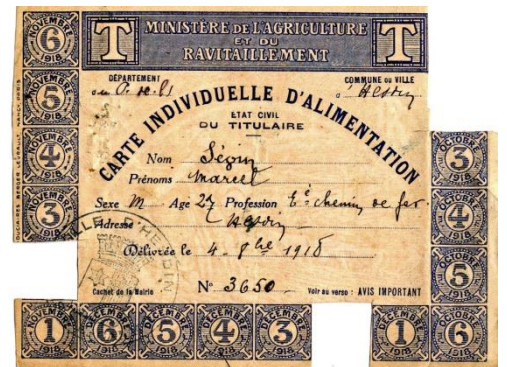 MINISTÈRE DE L'AGRICULTURE
ET DU
RAVITAILLEMENT
T
T
DÉPARTEMENT
COMMUNE OU VILLE
Hesdin
CARTE INDIVIDUELLE D'ALIMENTATION
ETAT CIVIL
DU TITULAIRE
Nom
Prénoms Marcel
Sexe M Age 27 Profession Eé chemin de fer
Adresse Hesdin
Délivrée le 4 - 8bre 1918
Cachet de la Mairie
Nº 3650
Voir au verso : AVIS IMPORTANT
VILLE D'HESDIN
NOVEMBRE 6 1918
NOVEMBRE 5 1918
NOVEMBRE 4 1918
NOVEMBRE 3 1918
OCTOBRE 3 1918
OCTOBRE 4 1918
OCTOBRE 5 1918
NOVEMBRE 1 1918
DÉCEMBRE 6 1918
DÉCEMBRE 5 1918
DÉCEMBRE 4 1918
DÉCEMBRE 3 1918
DÉCEMBRE 1 1918
OCTOBRE 6 1918